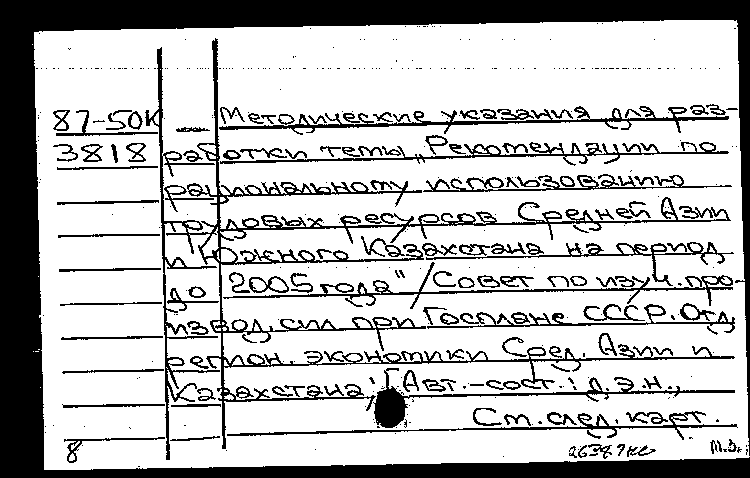 87-50К Методические указания для раз-
3818 работки темы „Рекомендации по
рациональному использованию
трудовых ресурсов Средней Азии
и Южного Казахстана на период
до 2005 года" / Совет по изуч. про-
извод. сил при Госплане СССР. Отд.
регион. экономики Сред. Азии и
Казахстана; [Авт.-сост.: д.э.н.,
См. след. карт.
8